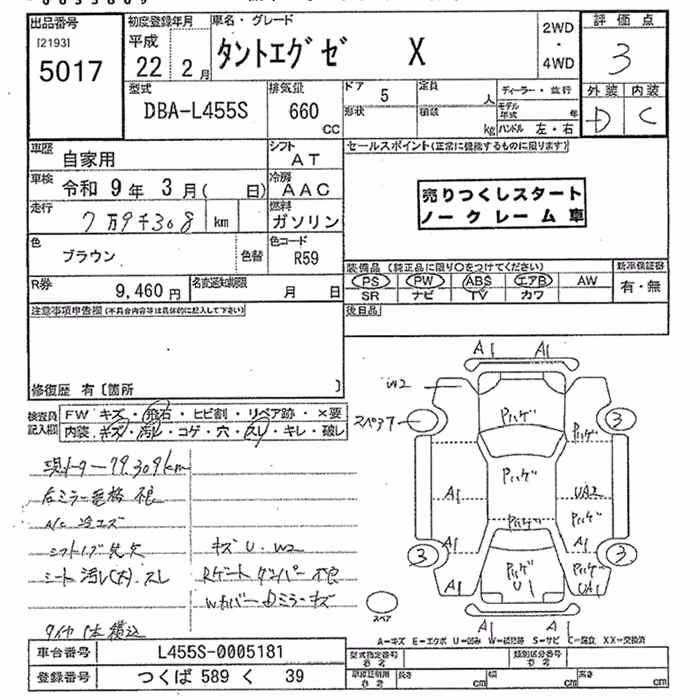 出品番号
[2193]
5017
初度登録年月
平成
22 2月
車名・グレード
タントエグゼ X
2WD
・
4WD
評価点
3
外装 内装
D C
型式
DBA-L455S
排気量
660
CC
ドア 5
形状
定員 人
積載 kg
ディーラー・並行
モデル年式 年
ハンドル 左・右
車歴 自家用
シフト AT
車検 令和 9年 3月( 日)
冷房 AAC
走行 7万9千308 km
燃料 ガソリン
色 ブラウン
色替
色コード R59
R券 9,460円
名変通知期限 月 日
セールスポイント(正常に機能するものに限ります)
売りつくしスタート
ノークレーム車
装備品(純正品に限り○をつけてください)
新車保証書
PS PW ABS エアB AW
SR ナビ TV カワ
有・無
後日品
注意事項申告欄(不具合内容等は具体的に記入して下さい)
修復歴 有〔箇所 〕
検査員記入欄
FW キズ・飛石・ヒビ割・リペア跡・×要
内装・キズ・汚レ・コゲ・穴・スレ・キレ・破レ
現メーター79.309km
右ミラー電格不良
A/C 冷エズ
シフトノブ先欠
シート汚レ(大).スレ
キズU.W2
Rゲートダンパー不良
Wカバー・Dミラーキズ
タイヤ1本積込
A1 A1
W2
スペア7
3
Pハゲ
Pハゲ
A1
Pハゲ
UA2
Pハゲ
Pハゲ
A1
A1
3
3
A1
Pハゲ
U1
Pハゲ
UA1
A1 A1
スペア
A=キズ E=エクボ U=凹み W=補修跡 S=サビ C=腐食 XX=交換済
車台番号 L455S-0005181
登録番号 つくば 589 く 39
型式指定番号
参考
類別区分番号
参考
車検証明用
参考
長さ cm
幅 cm
高さ cm